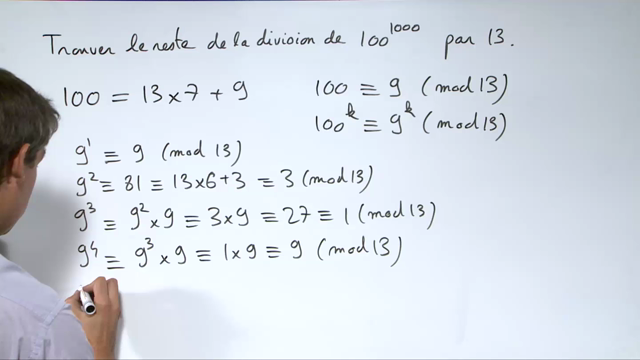 Trouver le reste de la division de 100^1000 par 13.
100 = 13 x 7 + 9
100 ≡ 9 (mod 13)
100^k ≡ 9^k (mod 13)
9^1 ≡ 9 (mod 13)
9^2 ≡ 81 ≡ 13x6+3 ≡ 3 (mod 13)
9^3 ≡ 9^2 x 9 ≡ 3 x 9 ≡ 27 ≡ 1 (mod 13)
9^4 ≡ 9^3 x 9 ≡ 1 x 9 ≡ 9 (mod 13)